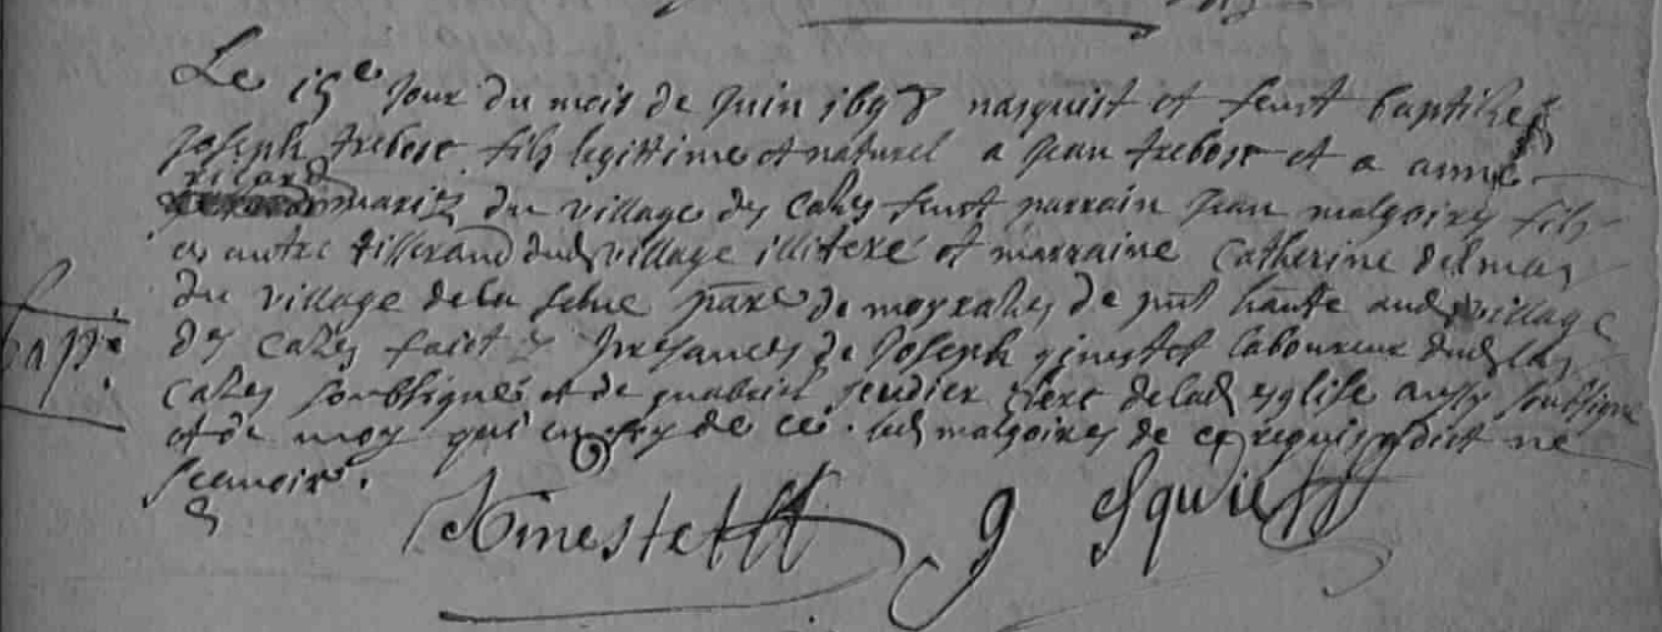 Le 15e jour du mois de juin 1698 nasquist et feust baptise
Joseph trebosc fils legittime et naturel a jean trebosc et a anne
ricard mariez du village des cazes feust parrain jean malgoires fils
a autre tisserand dud village illiteré et marraine Catherine delmas
du village de la selve parre de moyrazes de pnt habite aud village
bapt.
des cazes faict presances de Joseph ginestet laboureur dud las
cazes soubsigné et de guabriel clerc de lad esglise aussy soubsigne
et de moy qui en foy de ce . led malgoires de ce requis a dict ne
scavoir.
Ginestet g